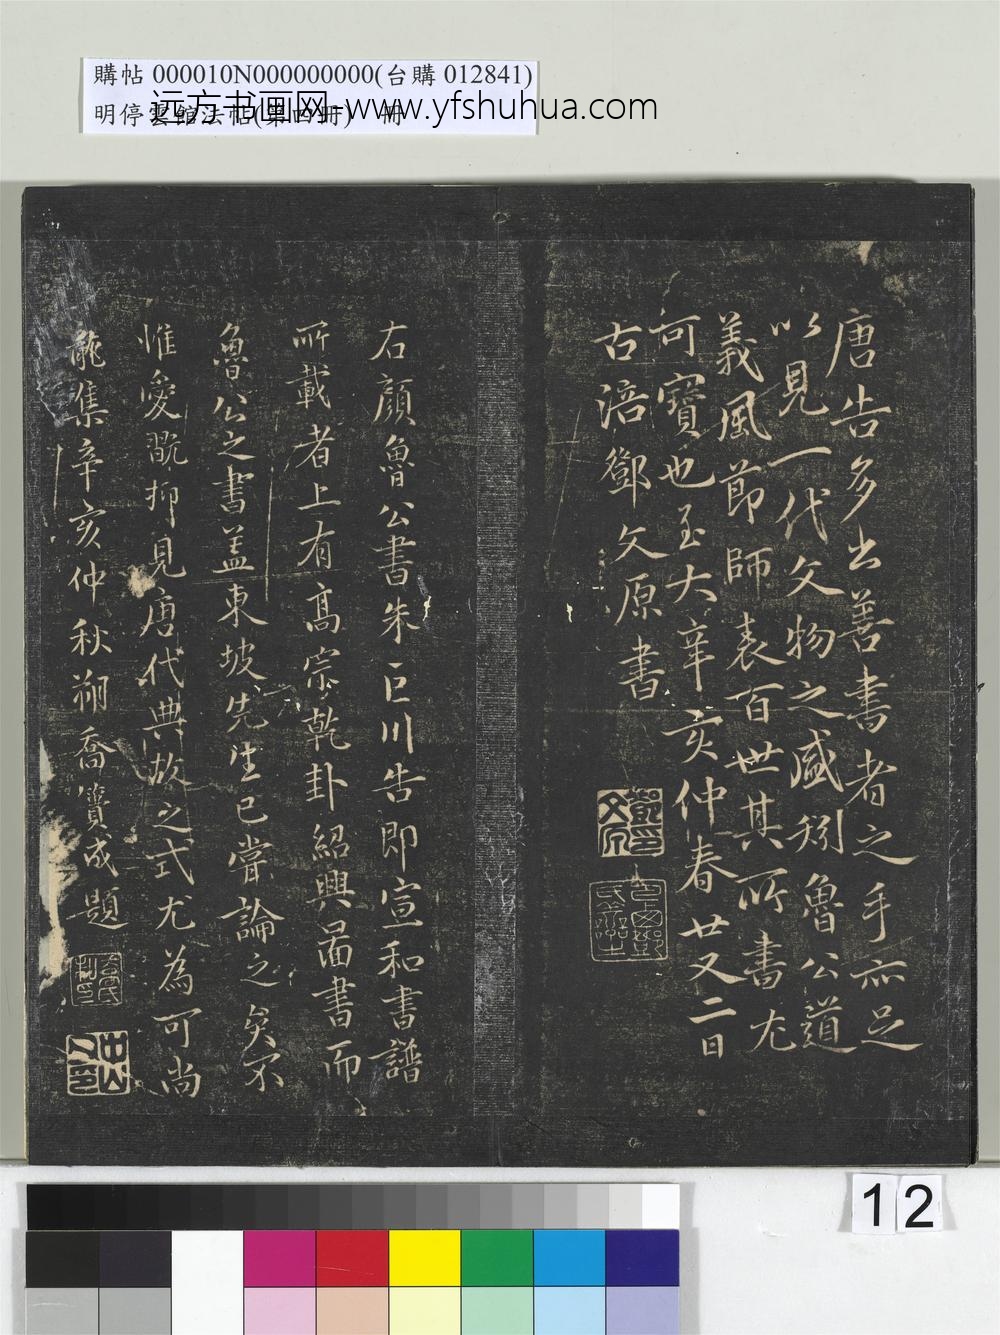 購帖 000010N000000000(台購 012841)
明停雲館法帖(第四冊) 冊
远方书画网-www.yfshuhua.com
唐告多出善書者之手亦足
以見一代文物之盛矧魯公道
義風節師表百世其所書尤
可寶也至大辛亥仲春廿又二日
古涪鄧文原書
右顏魯公書朱巨川告即宣和書譜
所載者上有高宗乾卦紹興啚書而
魯公之書盖東坡先生已嘗論之矣不
惟愛翫抑見唐代典故之式尤為可尚
辛亥仲秋朔喬簣成題
12